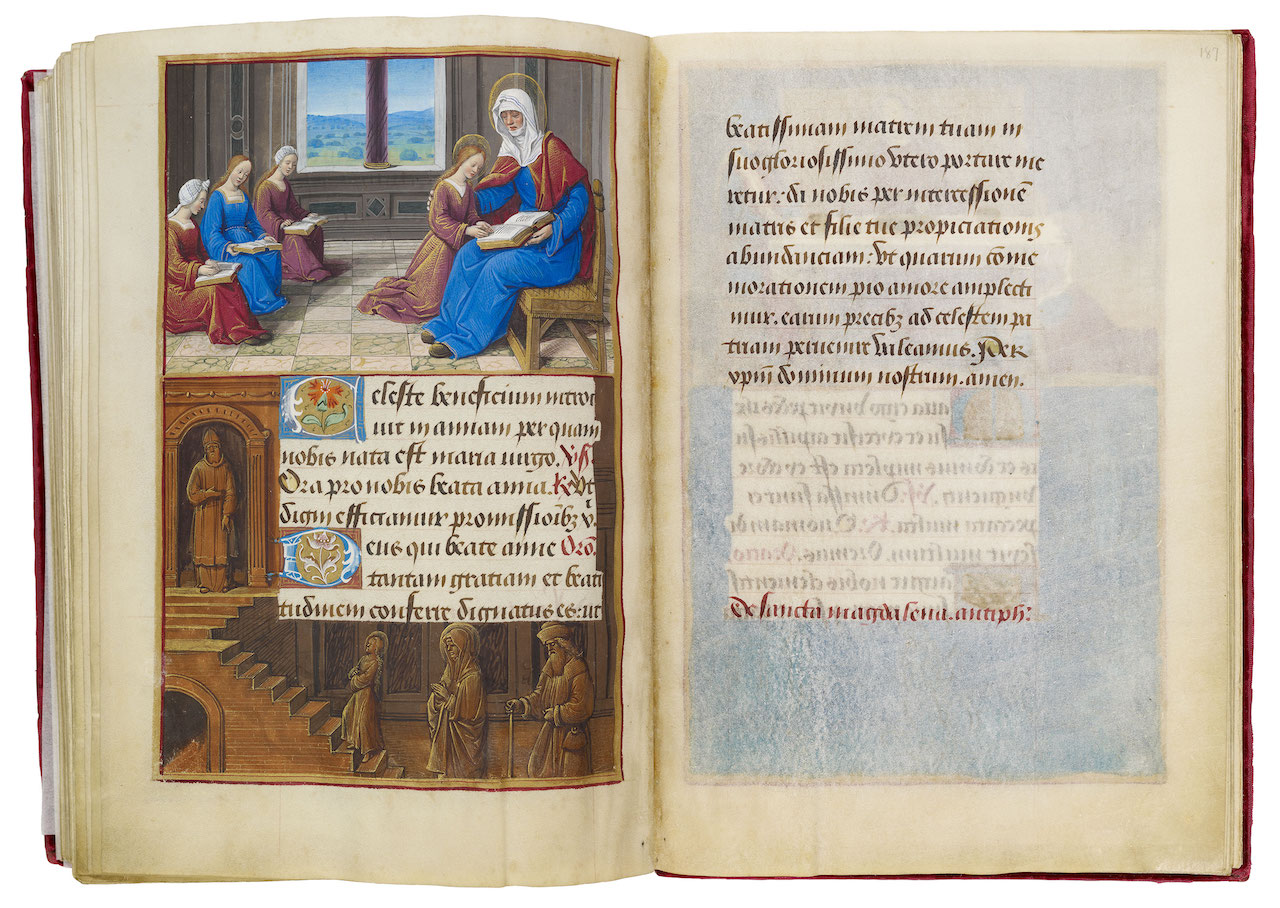 Celeste beneficium introi
uit in annam per quam
nobis nata est maria uirgo.
Ora pro nobis beata anna. Vt
digni efficiamur promissiōibz
Deus qui beate anne Orō.
tantam gratiam et beati
tudinem conferre dignatus es: ut
187
beatissimam matrem tuam in
suo gloriosissimo vtero portare me
retur: da nobis per intercessionē
matris et filie tue propiciationis
abundanciam: vt quarum cōme
morationem pio amore amplecti
mur. earum precibz ad celestem pa
triam peruenire valeamus. Per
xp̄m dominum nostrum. amen.
De sancta magdalena. antiph: